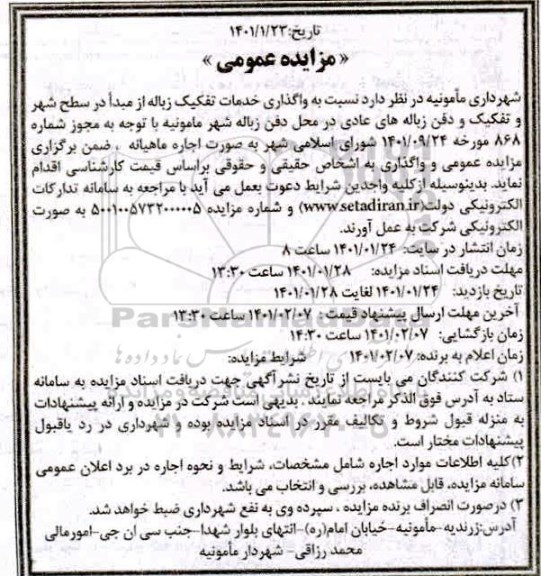 تاریخ:۱۴۰۱/۱/۲۳
« مزایده عمومی »
شهرداری مأمونیه در نظر دارد نسبت به واگذاری خدمات تفکیک زباله از مبدأ در سطح شهر
و تفکیک و دفن زباله های عادی در محل دفن زباله شهر مامونیه با توجه به مجوز شماره
۸۶۸ مورخه ۱۴۰۱/۰۹/۲۴ شورای اسلامی شهر به صورت اجاره ماهیانه ، ضمن برگزاری
مزایده عمومی و واگذاری به اشخاص حقیقی و حقوقی براساس قیمت کارشناسی اقدام
نماید. بدینوسیله از کلیه واجدین شرایط دعوت بعمل می آید با مراجعه به سامانه تدارکات
الکترونیکی دولت(www.setadiran.ir) و شماره مزایده ۵۰۰۱۰۰۵۷۳۲۰۰۰۰۰۵ به صورت
الکترونیکی شرکت به عمل آورند.
زمان انتشار در سایت: ۱۴۰۱/۰۱/۲۴ ساعت ۸
مهلت دریافت اسناد مزایده: ۱۴۰۱/۰۱/۲۸ ساعت ۱۳:۳۰
تاریخ بازدید: ۱۴۰۱/۰۱/۲۴ لغایت ۱۴۰۱/۰۱/۲۸
آخرین مهلت ارسال پیشنهاد قیمت : ۱۴۰۱/۰۲/۰۷ ساعت ۱۳:۳۰
زمان بازگشایی: ۱۴۰۱/۰۲/۰۷ ساعت ۱۴:۳۰
زمان اعلام به برنده: ۱۴۰۱/۰۲/۰۷ شرایط مزایده:
۱) شرکت کنندگان می بایست از تاریخ نشر آگهی جهت دریافت اسناد مزایده به سامانه
ستاد به آدرس فوق الذکر مراجعه نمایند . بدیهی است شرکت در مزایده و ارائه پیشنهادات
به منزله قبول شروط و تکالیف مقرر در اسناد مزایده بوده و شهرداری در رد یاقبول
پیشنهادات مختار است.
۲)کلیه اطلاعات موارد اجاره شامل مشخصات، شرایط و نحوه اجاره در برد اعلان عمومی
سامانه مزایده، قابل مشاهده، بررسی و انتخاب می باشد.
۳) درصورت انصراف برنده مزایده ، سپرده وی به نفع شهرداری ضبط خواهد شد.
آدرس:زرندیه-مأمونیه-خیابان امام(ره)-انتهای بلوار شهدا-جنب سی ان جی-امورمالی
محمد رزاقی- شهردار مأمونیه
ParsNamadData